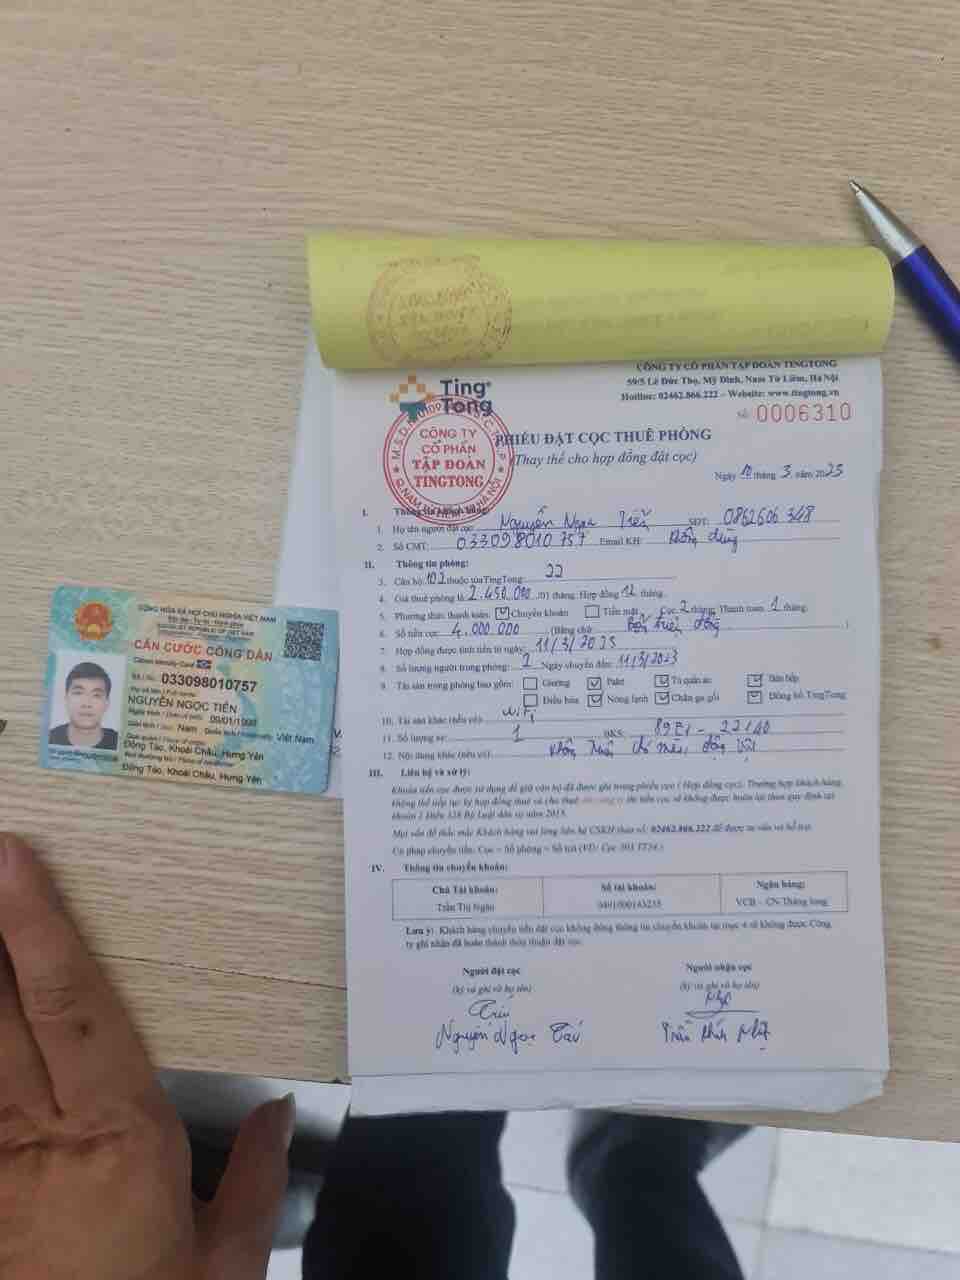 CÔNG TY CỔ PHẦN TẬP ĐOÀN TINGTONG
59/5 Lê Đức Thọ, Mỹ Đình, Nam Từ Liêm, Hà Nội
Hotline: 02462.866.222 – Website: www.tingtong.vn
Ting
Tong
Số: 0006310
CÔNG TY
CỔ PHẦN
TẬP ĐOÀN
TINGTONG
PHIẾU ĐẶT CỌC THUÊ PHÒNG
(Thay thế cho hợp đồng đặt cọc)
Ngày 10 tháng 3 năm 2023
I. Thông tin khách hàng:
1. Họ tên người đặt cọc: Nguyễn Ngọc Tiến SĐT: 0862606348
2. Số CMT: 033098010757 Email KH: Không dùng
II. Thông tin phòng:
3. Căn hộ 102 thuộc tòa TingTong: 22
4. Giá thuê phòng là 2.450.000 /01 tháng. Hợp đồng 12 tháng.
5. Phương thức thanh toán: Chuyển khoản Tiền mặt Cọc 2 tháng. Thanh toán 1 tháng.
6. Số tiền cọc: 4.000.000 (Bằng chữ: Bốn triệu đồng )
7. Hợp đồng được tính tiền từ ngày: 11/3/2023
8. Số lượng người trong phòng: 2 Ngày chuyển đến: 11/3/2023
9. Tài sản trong phòng bao gồm: Giường Tủ quần áo Bàn bếp
Điều hòa Nóng lạnh Chăn ga gối Đồng hồ TingTong
10. Tài sản khác (nếu có): wifi
11. Số lượng xe: 1 BKS: 89E1 - 22140
12. Nội dung khác (nếu có): Không nuôi chó mèo, động vật
III. Liên hệ và xử lý:
Khoản tiền cọc được sử dụng để giữ căn hộ đã được ghi trong phiếu cọc ( Hợp đồng cọc). Trường hợp khách hàng
không thể tiếp tục ký hợp đồng thuê và cho thuê thì tiền cọc sẽ không được hoàn lại theo quy định tại
khoản 2 Điều 328 Bộ Luật dân sự năm 2015.
Mọi vấn đề thắc mắc Khách hàng vui lòng liên hệ CSKH theo số: 02462.866.222 để được tư vấn và hỗ trợ.
Cú pháp chuyển tiền: Cọc + Số phòng + Số toà (VD: Cọc 301 TT24.)
IV. Thông tin chuyển khoản:
Chủ Tài khoản: Số tài khoản: Ngân hàng:
Trần Thị Ngân 0491000143235 VCB – CN Thăng long
Lưu ý: Khách hàng chuyển tiền đặt cọc không đúng thông tin chuyển khoản tại mục 4 sẽ không được Công
ty ghi nhận đã hoàn thành thỏa thuận đặt cọc.
Người đặt cọc Người nhận cọc
(ký và ghi rõ họ tên) (ký và ghi rõ họ tên)
Nguyễn Ngọc
Trần
CỘNG HÒA XÃ HỘI CHỦ NGHĨA VIỆT NAM
Độc lập - Tự do - Hạnh phúc
SOCIALIST REPUBLIC OF VIET NAM
CĂN CƯỚC CÔNG DÂN
Citizen Identity Card
Số / No.: 033098010757
Họ và tên / Full name:
NGUYỄN NGỌC TIẾN
Ngày sinh / Date of birth:
Giới tính / Sex: Nam Quốc tịch / Nationality: Việt Nam
Quê quán / Place of origin:
Đồng Tảo, Khoái Châu, Hưng Yên
Nơi thường trú / Place of residence:
Đồng Tảo, Khoái Châu, Hưng Yên